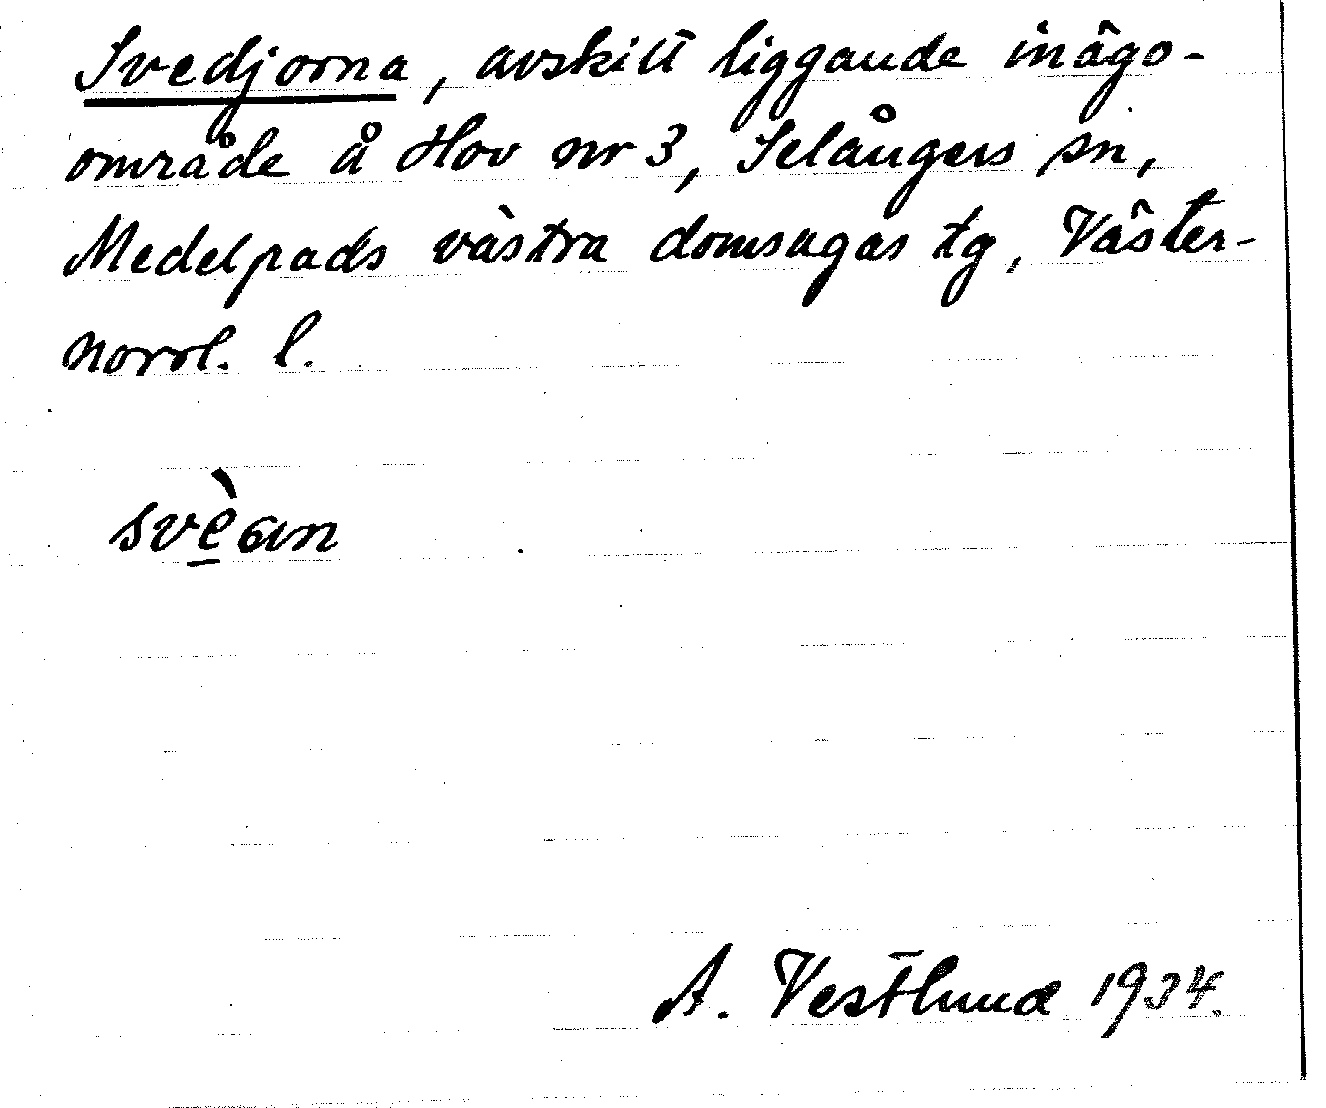 Svedjorna, avskilt liggande inägo-
område å Hov nr 3, Selångers sn,
Medelpads västra domsagas tg, Väster-
norrl. l.
svèan
A. Vestlund 1934.